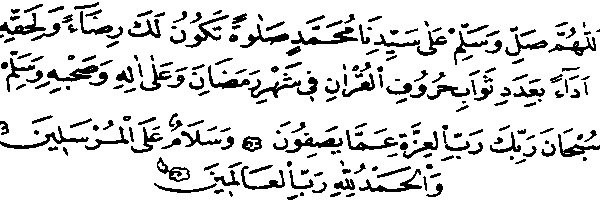 للٰهُمَّ صَلِّ وَسَلِّمْ عَلٰى سَيِّدِنَا مُحَمَّدٍ صَلٰوةً تَكُونُ لَكَ رِضَآءً وَلِحَقِّهِ
اَدَآءً بِعَدَدِ ثَوَابِ حُرُوفِ الْقُرْاٰنِ فِى شَهْرِ رَمَضَانَ وَعَلٰى اٰلِهِ وَصَحْبِهِ وَسَلِّمْ
سُبْحَانَ رَبِّكَ رَبِّ الْعِزَّةِ عَمَّا يَصِفُونَ وَسَلَامٌ عَلَى الْمُرْسَلِينَ
وَالْحَمْدُ لِلّٰهِ رَبِّ الْعَالَمِينَ